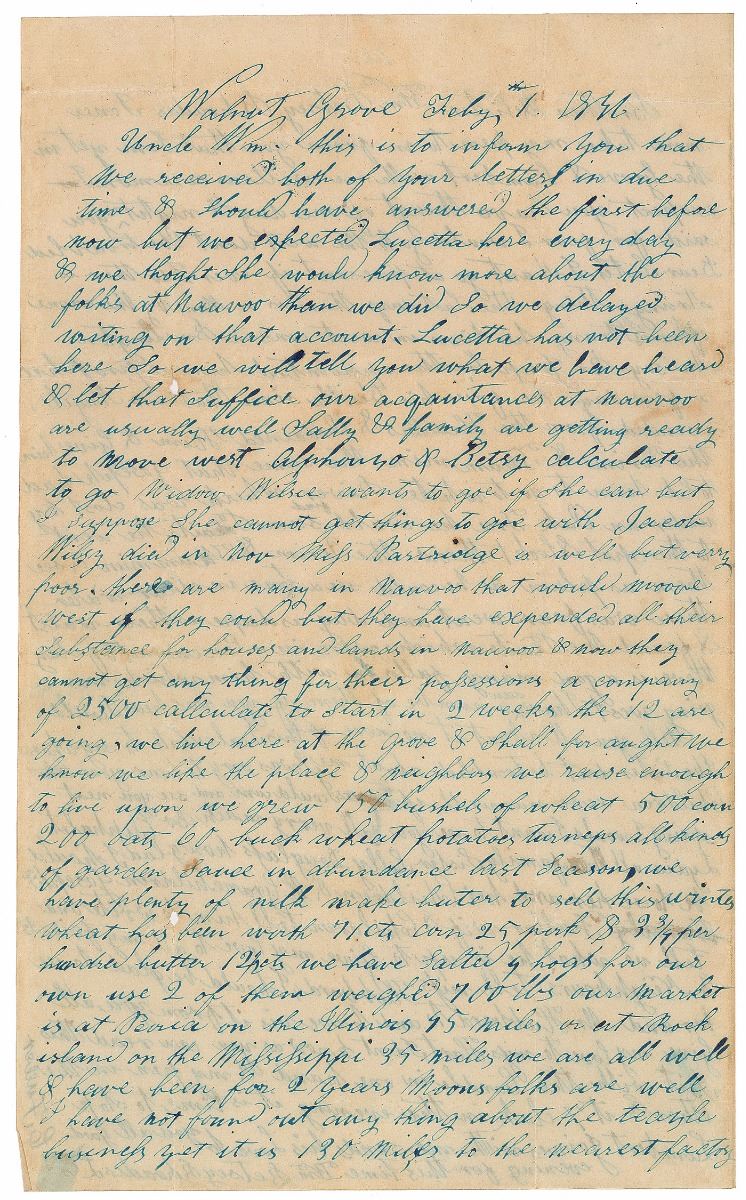 Walnut Grove Feby th 1. 1846
Uncle Wm. this is to inform you that
we received both of your letters in due
time & should have answered the first before
now but we expected Lucetta here every day
& we thoght she would know more about the
folks at Nauvoo than we did So we delayed
writing on that account. Lucetta has not been
here So we will tell you what we have heard
& let that Suffice our acqaintances at Nauvoo
are usually well Sally & family are getting ready
to move west Alphonzo & Betsy calculate
to go Widow Wilsie wants to goe if She can but
I suppose She cannot get things to goe with Jacob
Wilsy died in Nov Miss Partridge is well but verry
poor. there are many in Nauvoo that would moove
west if they could but they have expended all their
Substance for houses and lands in Nauvoo & now they
cannot get any thing for their possessions a company
of 2500 callculate to Start in 2 weeks the 12 are
going. we live here at the Grove & Shall for aught we
know we like the place & neighbors we raise enough
to live upon we grew 150 bushels of wheat 500 corn
200 oats 60 buck wheat potatoes turneps all kinds
of garden Sauce in abundance last Season, we
have plenty of milk make buter to sell this winter
wheat has been worth 71cts corn 25 pork $ 2 3/4 per
hundred butter cts we have Salted 9 hogs for our
own use 2 of them weighed 700 lbs our market
is at Peoria on the Illinois 45 miles or at Rock
island on the Mississippi 35 miles we are all well
& have been for 2 years Moons folks are well
I have not found out any thing about the teazle
business yet it is 130 miles to the nearest factory